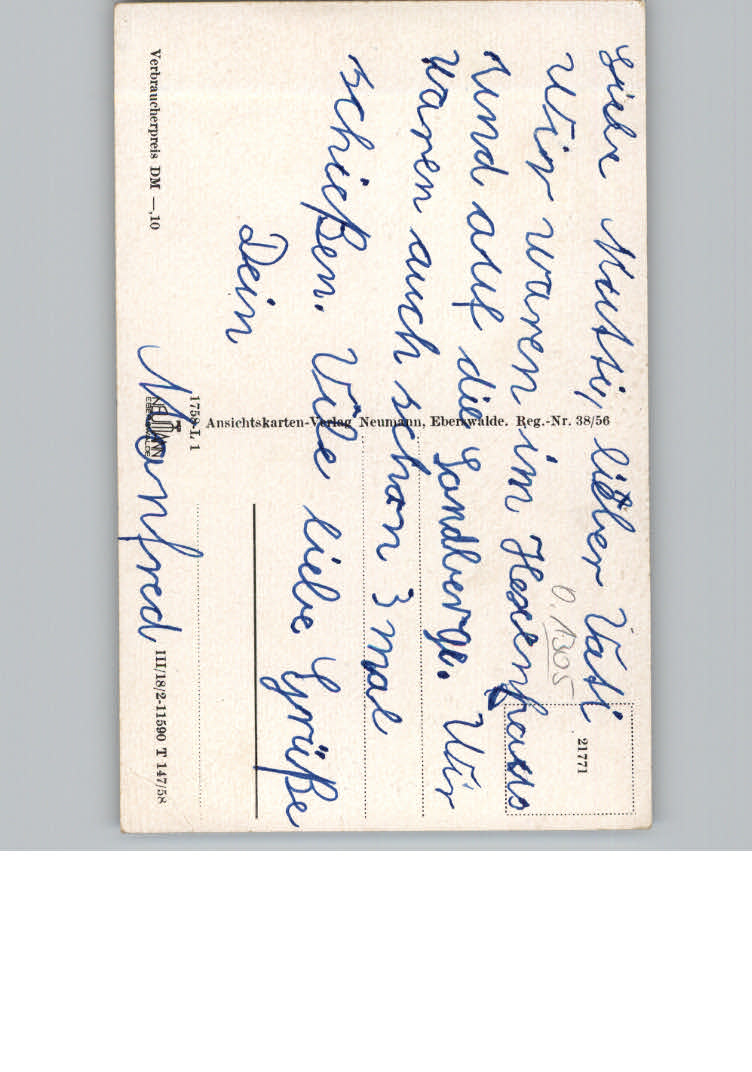 Liebe Mutti, lieber Vati
Wir waren im Hexenhaus
und auf die Sandberge. Wir
waren auch schon 3 mal
schießen. Viele liebe Grüße
Dein
Manfred
0.1305
21771
Ansichtskarten-Verlag Neumann, Eberswalde. Reg.-Nr. 38/56
1758 L 1
NEUMANN
EBERSWALDE
Verbraucherpreis DM —,10
III/18/2-11590 T 147/58